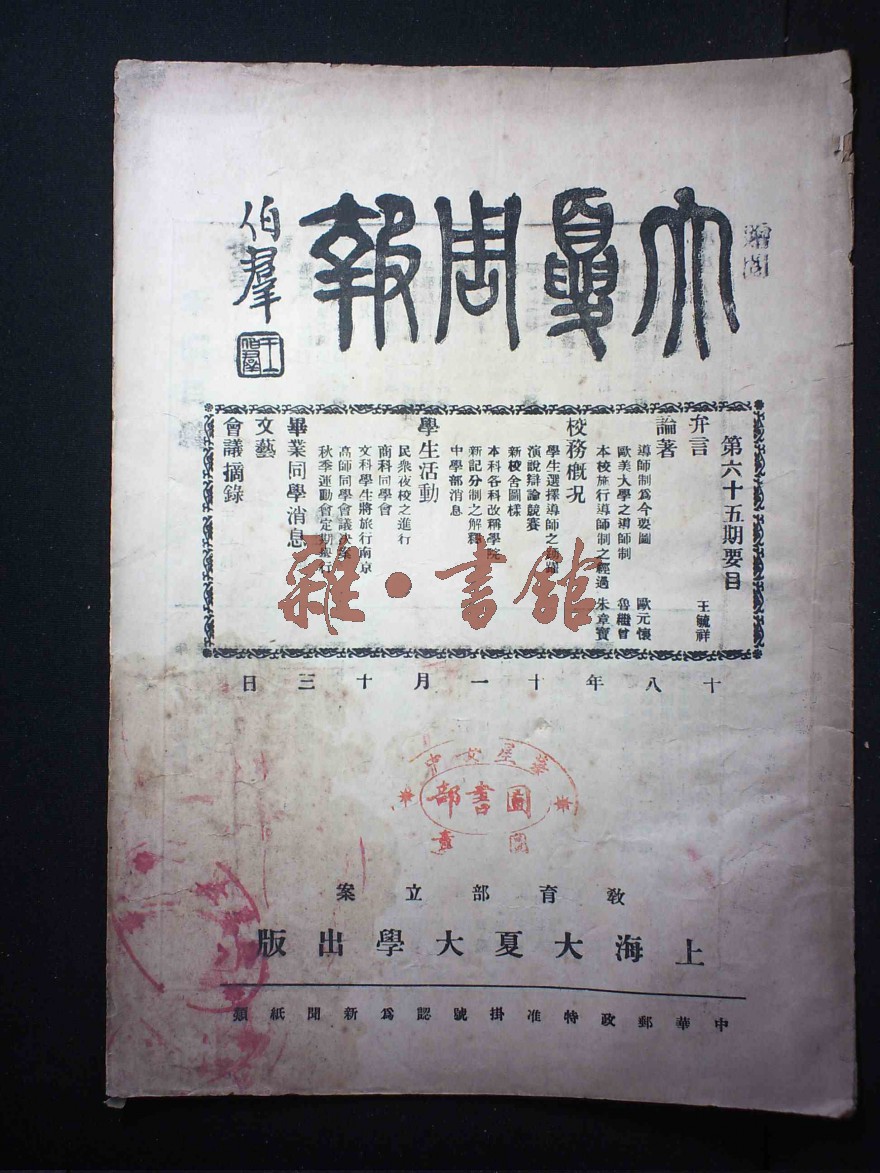 大夏周報
伯羣
王伯羣
贈閱
第六十五期要目
弁言 王毓祥
論著
導師制爲今要圖 歐元懷
歐美大學之導師制 魯繼曾
本校施行導師制之經過 朱章寶
校務概況
學生選擇導師之踴躍
演說辯論競賽
新校舍圖樣
本科各科改稱學院
新記分制之解釋
中學部消息
學生活動
民衆夜校之進行
商科同學會
文科學生將旅行南京
高師同學會議決案
秋季運動會定期舉行
畢業同學消息
文藝
會議摘錄
雜·書館
十八年十一月十三日
星文中
圖書部
圖章
教育部立案
上海大夏大學出版
中華郵政特准掛號認爲新聞紙類